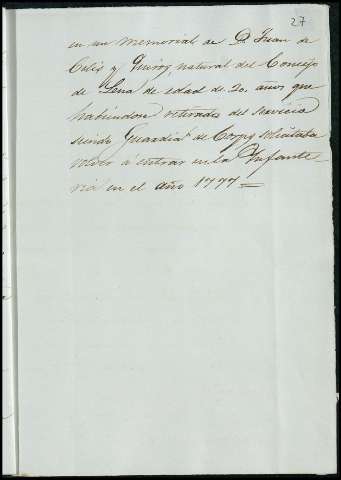 27
en un Memorial de D. Juan de
Celis y Quiros, natural del Concejo
de Lena de edad de 20 años que
habiendose retirado del servicio
siendo Guardia de Corps solicitaba
volver á entrar en la Infante
ria en el año 1777 =